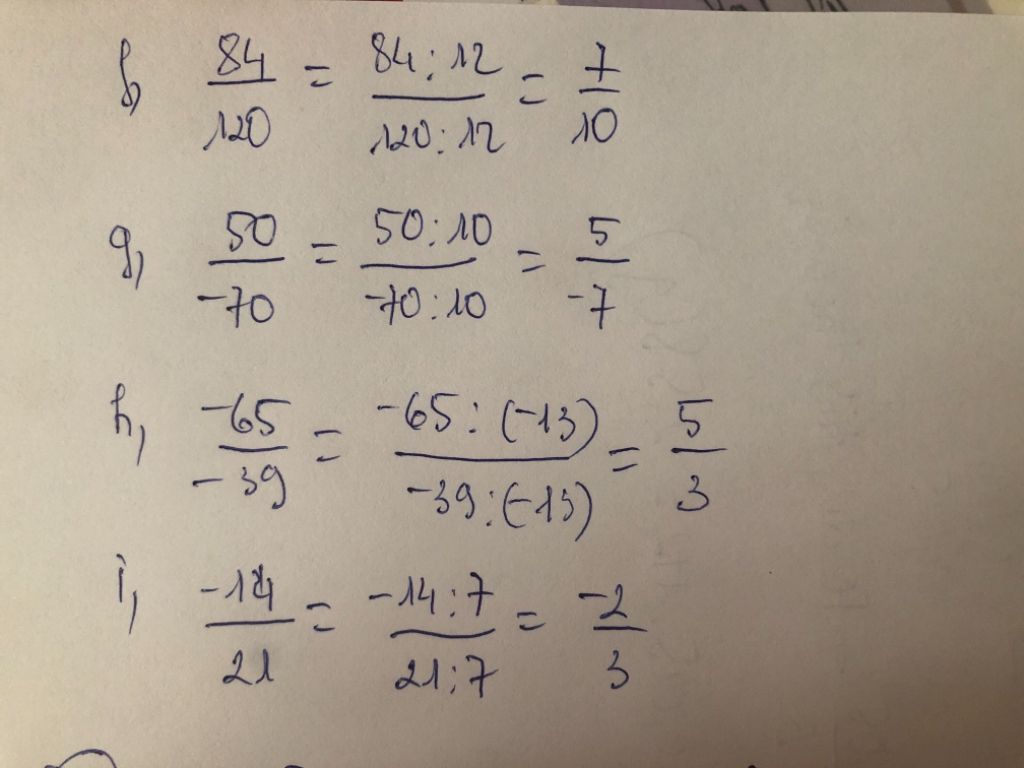 f, 84/120 = 84:12/120:12 = 7/10
g, 50/-70 = 50:10/-70:10 = 5/-7
h, -65/-39 = -65:(-13)/-39:(-13) = 5/3
i, -14/21 = -14:7/21:7 = -2/3